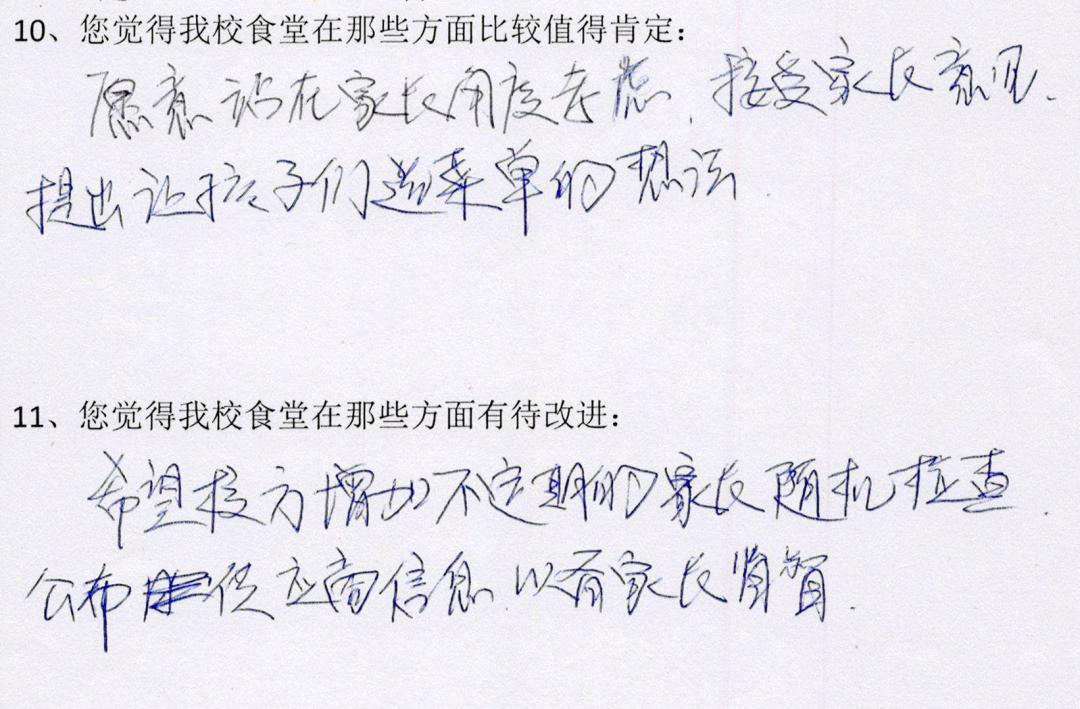 10、您觉得我校食堂在那些方面比较值得肯定:
愿意站在家长角度考虑、接受家长意见.
提出让孩子们选菜单的想法
11、您觉得我校食堂在那些方面有待改进:
希望校方增加不定期的家长随机检查.
公布供应商信息.以